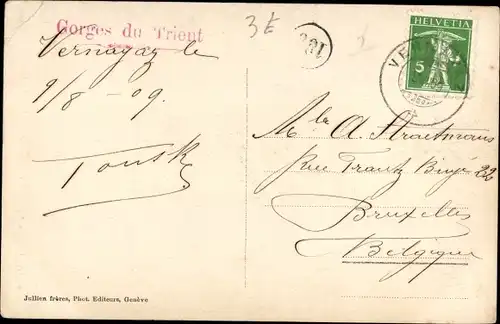 Gorges du Trient
3£
HELVETIA
5
Vernayaz le
9/8 - 09.
Mlle A. Straetmans
Rue Frantz 22
Bruxelles
Belgique
Jullien frères, Phot. Editeurs, Genève